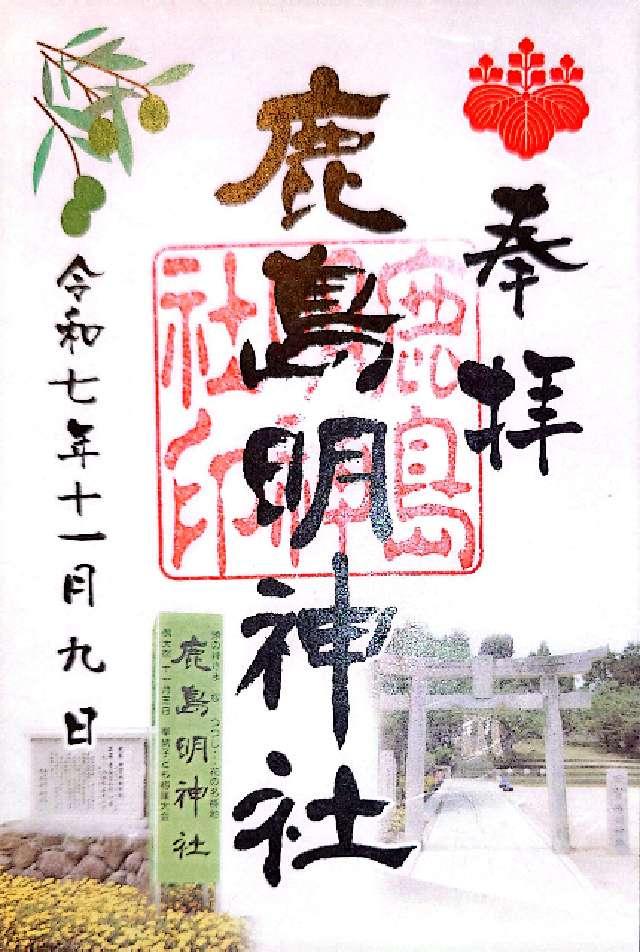 奉拝
鹿島明神社
鹿島
明神
社印
令和七年十一月九日
鹿島明神社